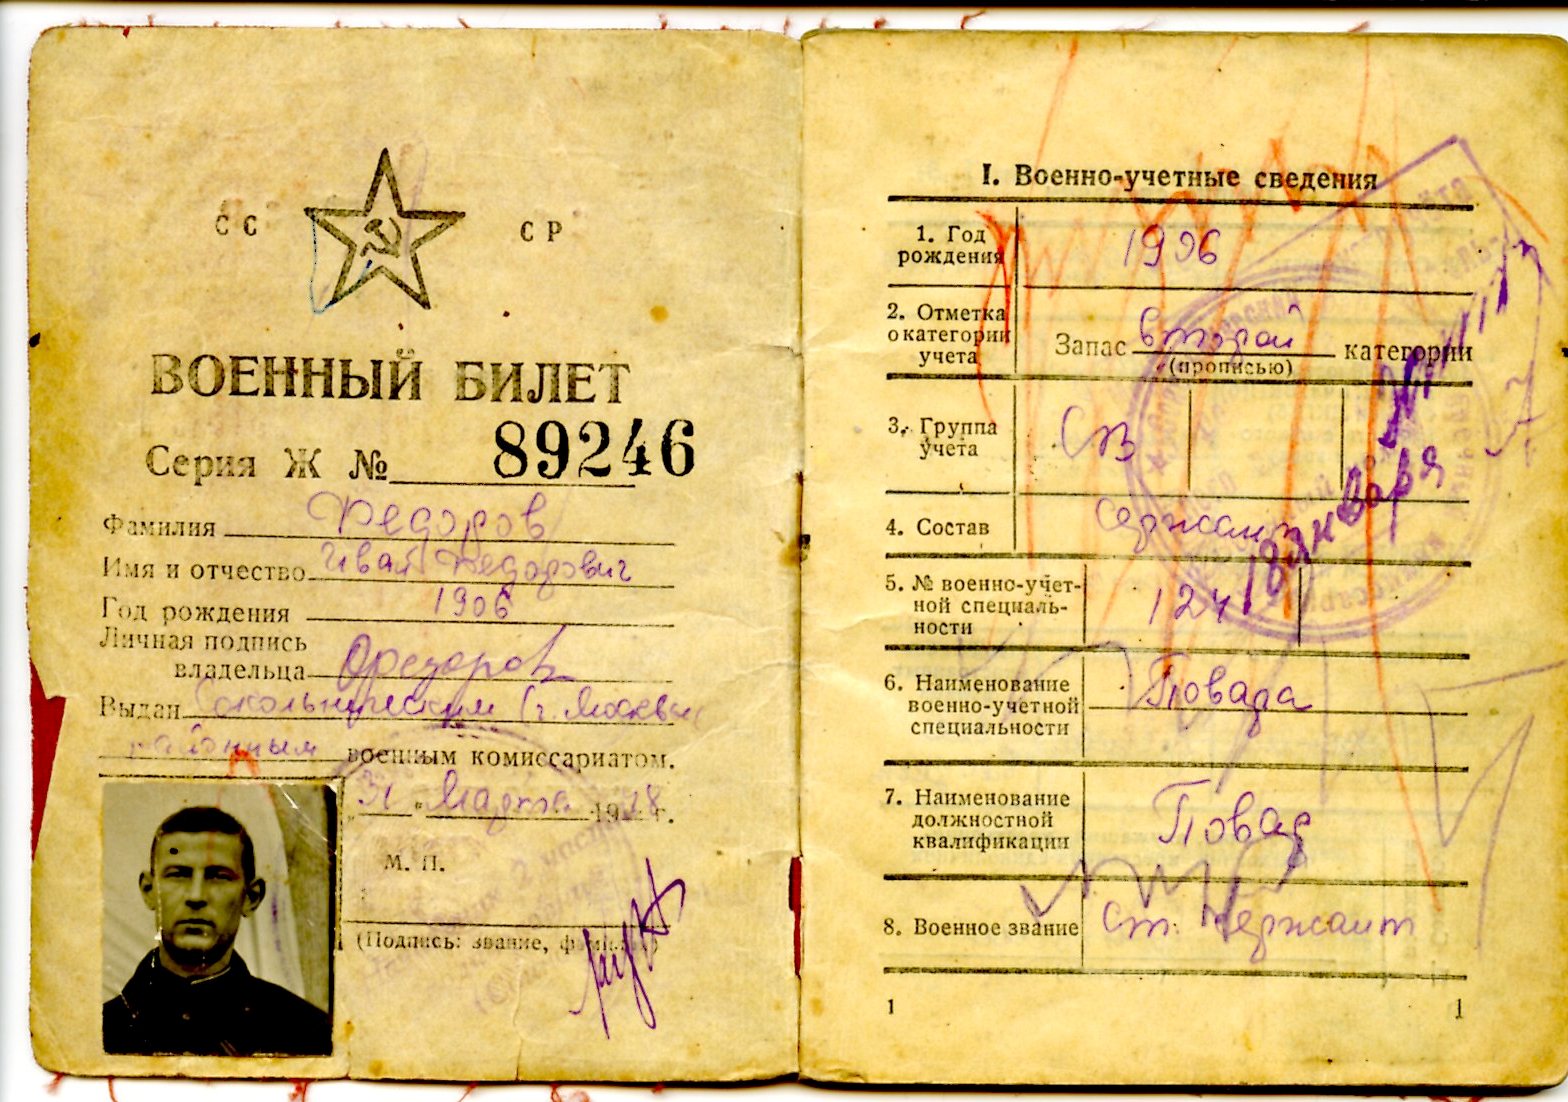 СС СР
ВОЕННЫЙ БИЛЕТ
Серия Ж № 89246
Фамилия Федоров
Имя и отчество Иван Федорович
Год рождения 1906
Личная подпись
владельца Федоров
Выдан Сокольническим (г. Москвы)
районным военным комиссариатом.
„31" Марта 1948 г.
М. П.
(Подпись: звание, фамилия)
I. Военно-учетные сведения
1. Год
рождения
1906
2. Отметка
о категории
учета
Запас второй категории
(прописью)
3. Группа
учета
СВ
4. Состав
Сержант
5. № военно-учет-
ной специаль-
ности
124
18 января
6. Наименование
военно-учетной
специальности
Повара
7. Наименование
должностной
квалификации
Повар
8. Военное звание
Ст. Сержант
1
1